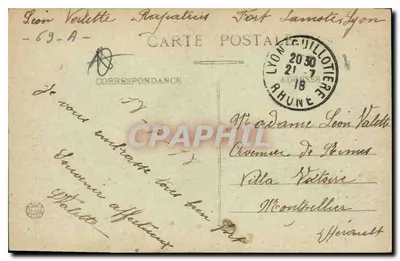 Léon Valette Rapatriés Fort Lamotte, Lyon
- 69 - A -
CARTE POSTALE
CORRESPONDANCE
LYON GUILLOTIERE
20 30
21 - 7
18
RHONE
Je vous
embrasse tous bien fort
Souvenir affectueux
Valette
Madame Léon Valette
Avenue de
Villa Voltaire
Montpellier
Hérault
CPAPHIL.com